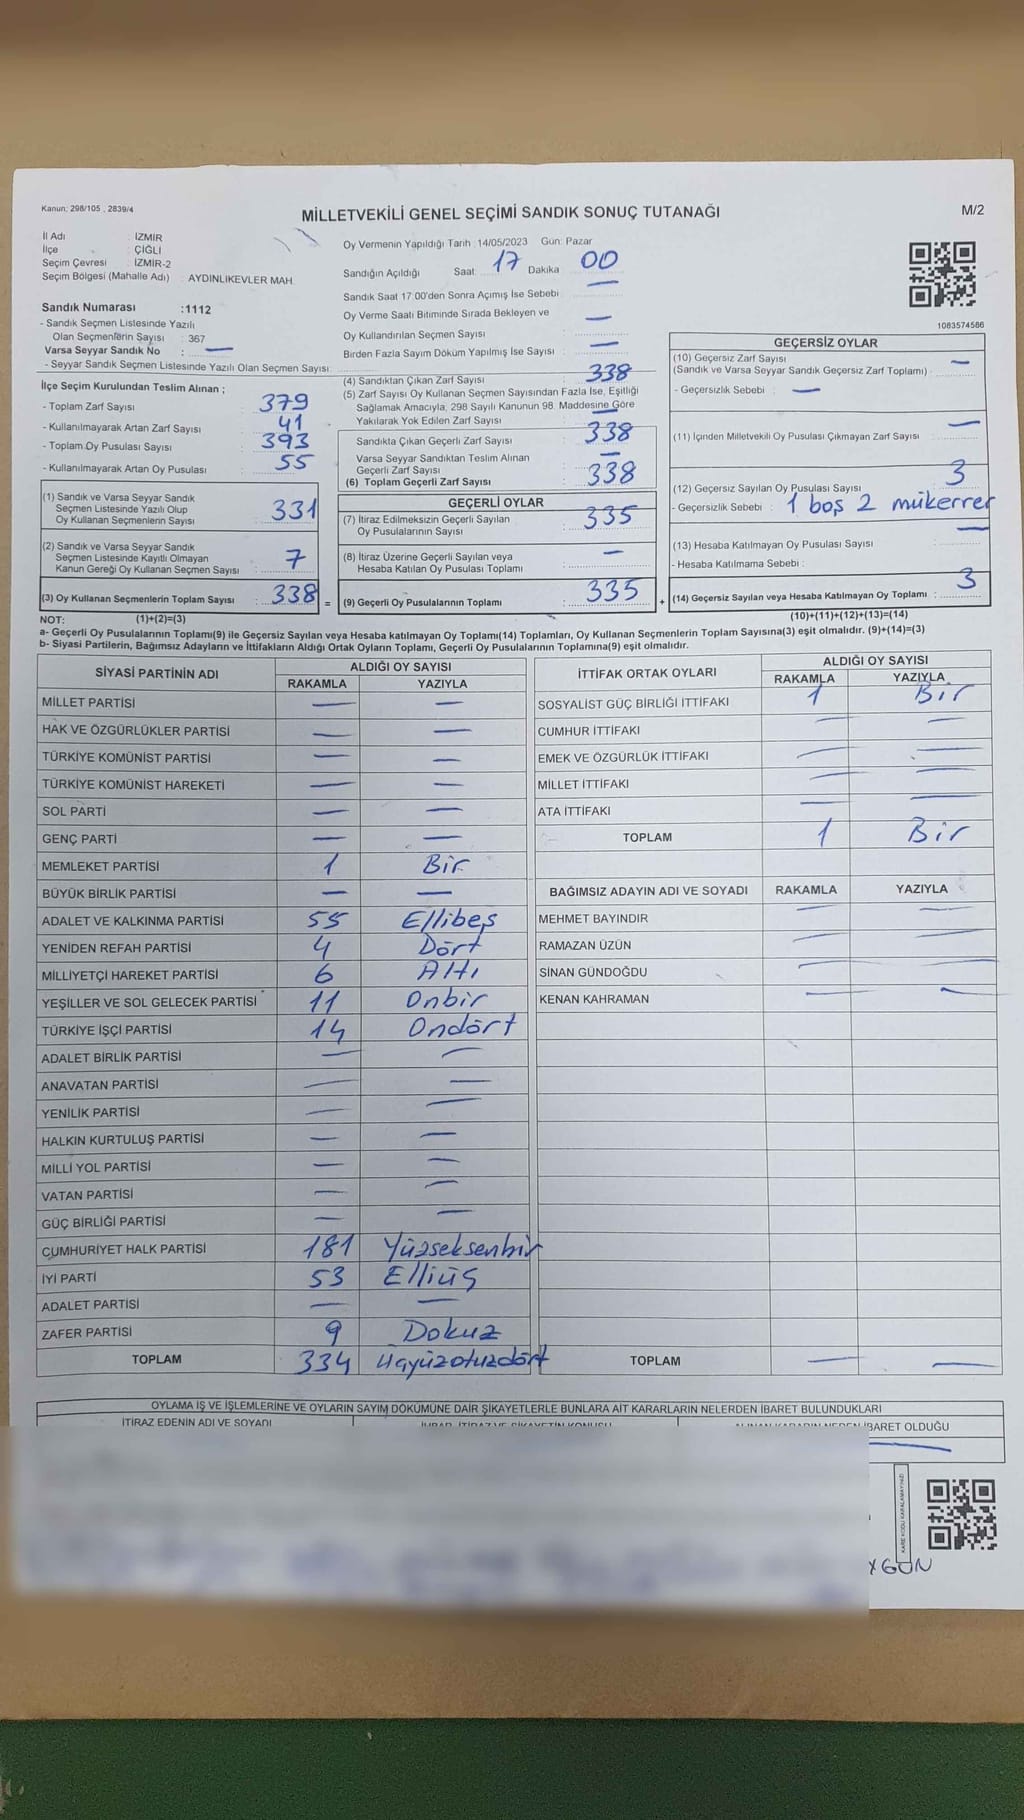 Kanun; 298/105 , 2839/4
MİLLETVEKİLİ GENEL SEÇİMİ SANDIK SONUÇ TUTANAĞI
M/2
İl Adı : İZMİR
İlçe : ÇİĞLİ
Seçim Çevresi : İZMİR-2
Seçim Bölgesi (Mahalle Adı) : AYDINLIKEVLER MAH.
Sandık Numarası :1112
- Sandık Seçmen Listesinde Yazılı
Olan Seçmenlerin Sayısı : 367
Varsa Seyyar Sandık No : —
- Seyyar Sandık Seçmen Listesinde Yazılı Olan Seçmen Sayısı:
Oy Vermenin Yapıldığı Tarih :14/05/2023 Gün: Pazar
Sandığın Açıldığı Saat: 17 Dakika 00
Sandık Saat 17.00'den Sonra Açımış İse Sebebi : —
Oy Verme Saati Bitiminde Sırada Bekleyen ve
Oy Kullandırılan Seçmen Sayısı : —
Birden Fazla Sayım Döküm Yapılmış İse Sayısı : —
1083574586
İlçe Seçim Kurulundan Teslim Alınan ;
- Toplam Zarf Sayısı : 379
- Kullanılmayarak Artan Zarf Sayısı : 41
- Toplam Oy Pusulası Sayısı : 393
- Kullanılmayarak Artan Oy Pusulası : 55
(1) Sandık ve Varsa Seyyar Sandık
Seçmen Listesinde Yazılı Olup
Oy Kullanan Seçmenlerin Sayısı : 331
(2) Sandık ve Varsa Seyyar Sandık
Seçmen Listesinde Kayıtlı Olmayan
Kanun Gereği Oy Kullanan Seçmen Sayısı : 7
(3) Oy Kullanan Seçmenlerin Toplam Sayısı : 338 =
(4) Sandıktan Çıkan Zarf Sayısı : 338
(5) Zarf Sayısı Oy Kullanan Seçmen Sayısından Fazla İse, Eşitliği
Sağlamak Amacıyla, 298 Sayılı Kanunun 98. Maddesine Göre
Yakılarak Yok Edilen Zarf Sayısı : —
Sandıkta Çıkan Geçerli Zarf Sayısı : 338
Varsa Seyyar Sandıktan Teslim Alınan
Geçerli Zarf Sayısı : —
(6) Toplam Geçerli Zarf Sayısı : 338
GEÇERLİ OYLAR
(7) İtiraz Edilmeksizin Geçerli Sayılan
Oy Pusulalarının Sayısı : 335
(8) İtiraz Üzerine Geçerli Sayılan veya
Hesaba Katılan Oy Pusulası Toplamı : —
(9) Geçerli Oy Pusulalarının Toplamı : 335 +
GEÇERSİZ OYLAR
(10) Geçersiz Zarf Sayısı
(Sandık ve Varsa Seyyar Sandık Geçersiz Zarf Toplamı) : —
- Geçersizlik Sebebi : —
(11) İçinden Milletvekili Oy Pusulası Çıkmayan Zarf Sayısı : —
(12) Geçersiz Sayılan Oy Pusulası Sayısı : 3
- Geçersizlik Sebebi : 1 boş 2 mükerrer
(13) Hesaba Katılmayan Oy Pusulası Sayısı : —
- Hesaba Katılmama Sebebi :
(14) Geçersiz Sayılan veya Hesaba Katılmayan Oy Toplamı : 3
NOT: (1)+(2)=(3) (10)+(11)+(12)+(13)=(14)
a- Geçerli Oy Pusulalarının Toplamı(9) ile Geçersiz Sayılan veya Hesaba Katılmayan Oy Toplamı(14) Toplamları, Oy Kullanan Seçmenlerin Toplam Sayısına(3) eşit olmalıdır. (9)+(14)=(3)
b- Siyasi Partilerin, Bağımsız Adayların ve İttifakların Aldığı Ortak Oyların Toplamı, Geçerli Oy Pusulalarının Toplamına(9) eşit olmalıdır.
SİYASİ PARTİNİN ADI ALDIĞI OY SAYISI
RAKAMLA YAZIYLA
MİLLET PARTİSİ — —
HAK VE ÖZGÜRLÜKLER PARTİSİ — —
TÜRKİYE KOMÜNİST PARTİSİ — —
TÜRKİYE KOMÜNİST HAREKETİ — —
SOL PARTİ — —
GENÇ PARTİ — —
MEMLEKET PARTİSİ 1 Bir
BÜYÜK BİRLİK PARTİSİ — —
ADALET VE KALKINMA PARTİSİ 55 Ellibeş
YENİDEN REFAH PARTİSİ 4 Dört
MİLLİYETÇİ HAREKET PARTİSİ 6 Altı
YEŞİLLER VE SOL GELECEK PARTİSİ 11 Onbir
TÜRKİYE İŞÇİ PARTİSİ 14 Ondört
ADALET BİRLİK PARTİSİ — —
ANAVATAN PARTİSİ — —
YENİLİK PARTİSİ — —
HALKIN KURTULUŞ PARTİSİ — —
MİLLİ YOL PARTİSİ — —
VATAN PARTİSİ — —
GÜÇ BİRLİĞİ PARTİSİ — —
CUMHURİYET HALK PARTİSİ 181 Yüzseksenbir
İYİ PARTİ 53 Elliüç
ADALET PARTİSİ — —
ZAFER PARTİSİ 9 Dokuz
TOPLAM 334 üçyüzotuzdört
İTTİFAK ORTAK OYLARI ALDIĞI OY SAYISI
RAKAMLA YAZIYLA
SOSYALİST GÜÇ BİRLİĞİ İTTİFAKI 1 Bir
CUMHUR İTTİFAKI — —
EMEK VE ÖZGÜRLÜK İTTİFAKI — —
MİLLET İTTİFAKI — —
ATA İTTİFAKI — —
TOPLAM 1 Bir
BAĞIMSIZ ADAYIN ADI VE SOYADI RAKAMLA YAZIYLA
MEHMET BAYINDIR — —
RAMAZAN ÜZÜN — —
SİNAN GÜNDOĞDU — —
KENAN KAHRAMAN — —
TOPLAM — —
OYLAMA İŞ VE İŞLEMLERİNE VE OYLARIN SAYIM DÖKÜMÜNE DAİR ŞİKAYETLERLE BUNLARA AİT KARARLARIN NELERDEN İBARET BULUNDUKLARI
İTİRAZ EDENİN ADI VE SOYADI
İBARET OLDUĞU
KARE KODU KARALAMAYINIZ!